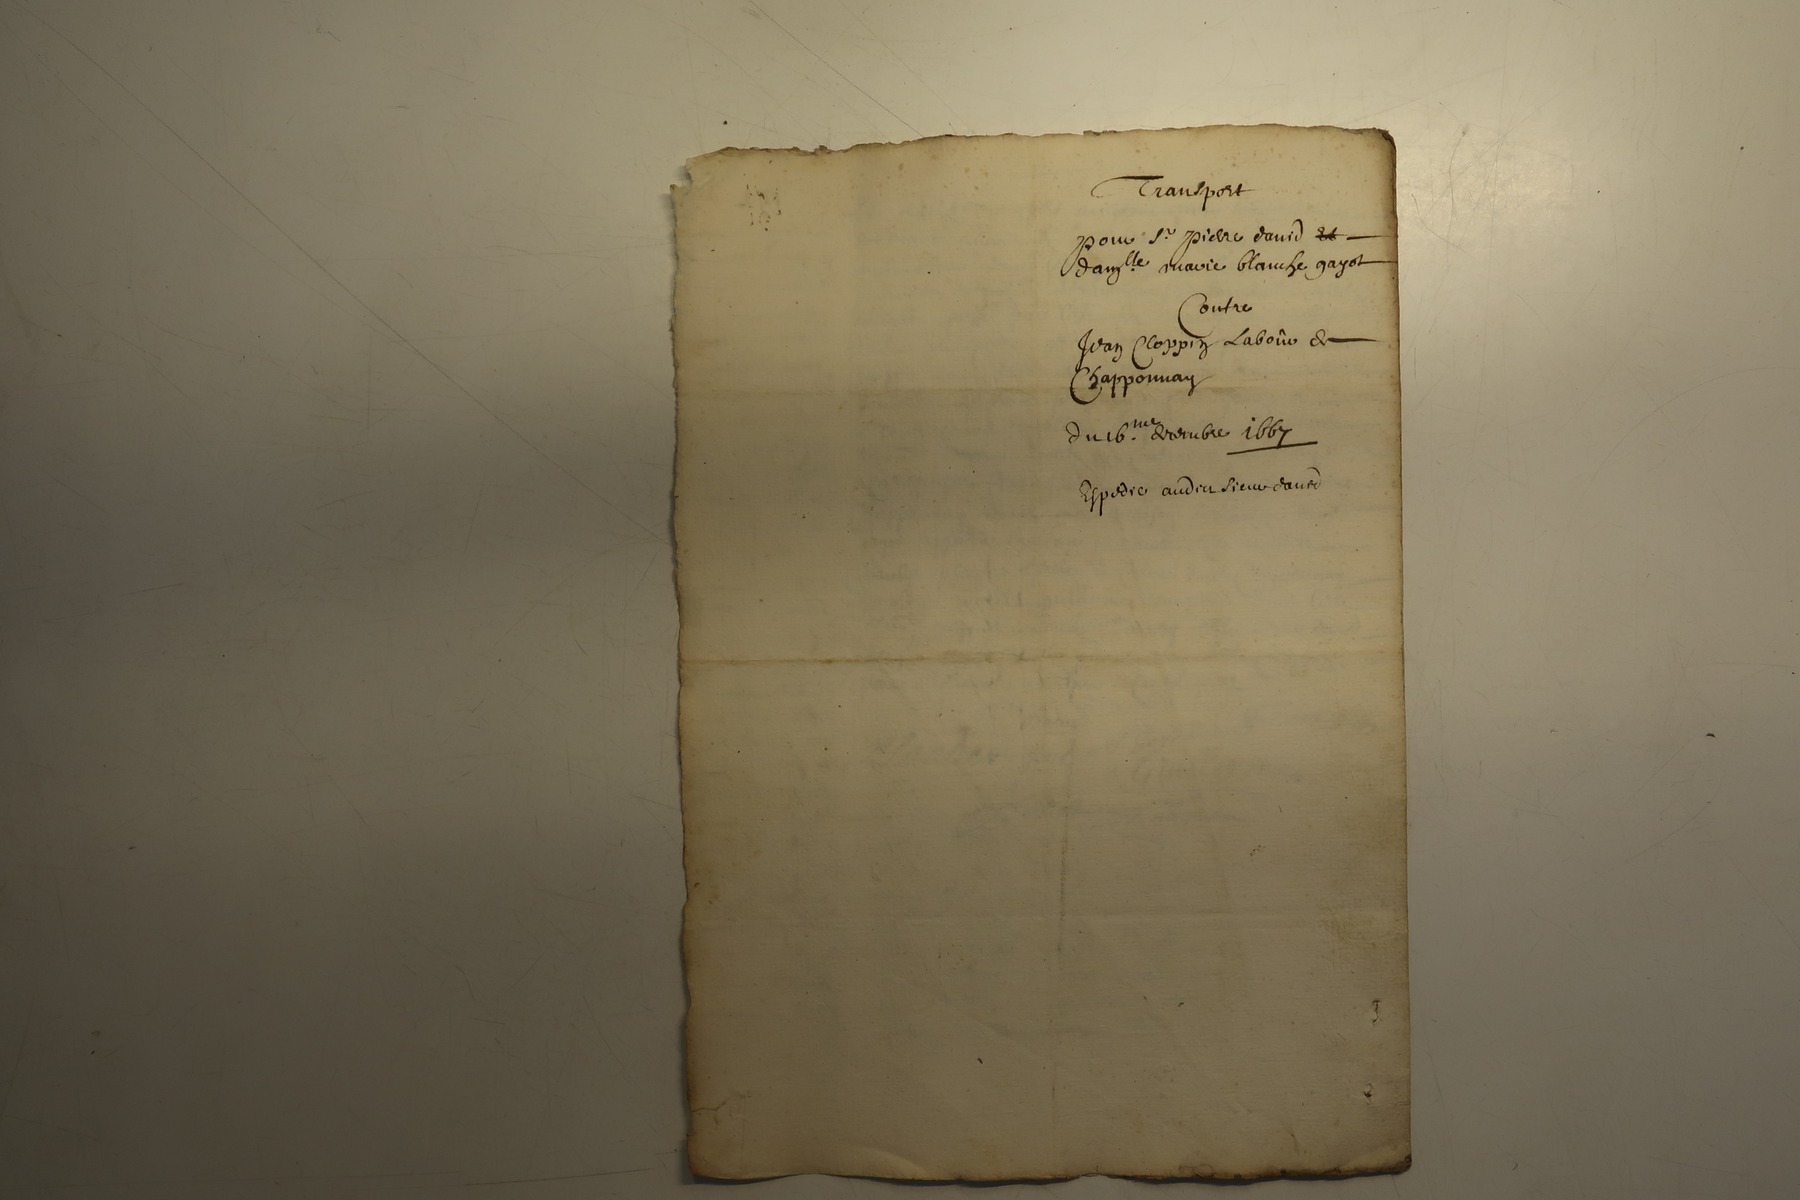 Transport
pour Sr Pierre david et
damlle marie blanche gayot
Contre
Jean Cloppin Labour de
Chapponnay
du 16.me decembre 1667
Expedie audict sieur david